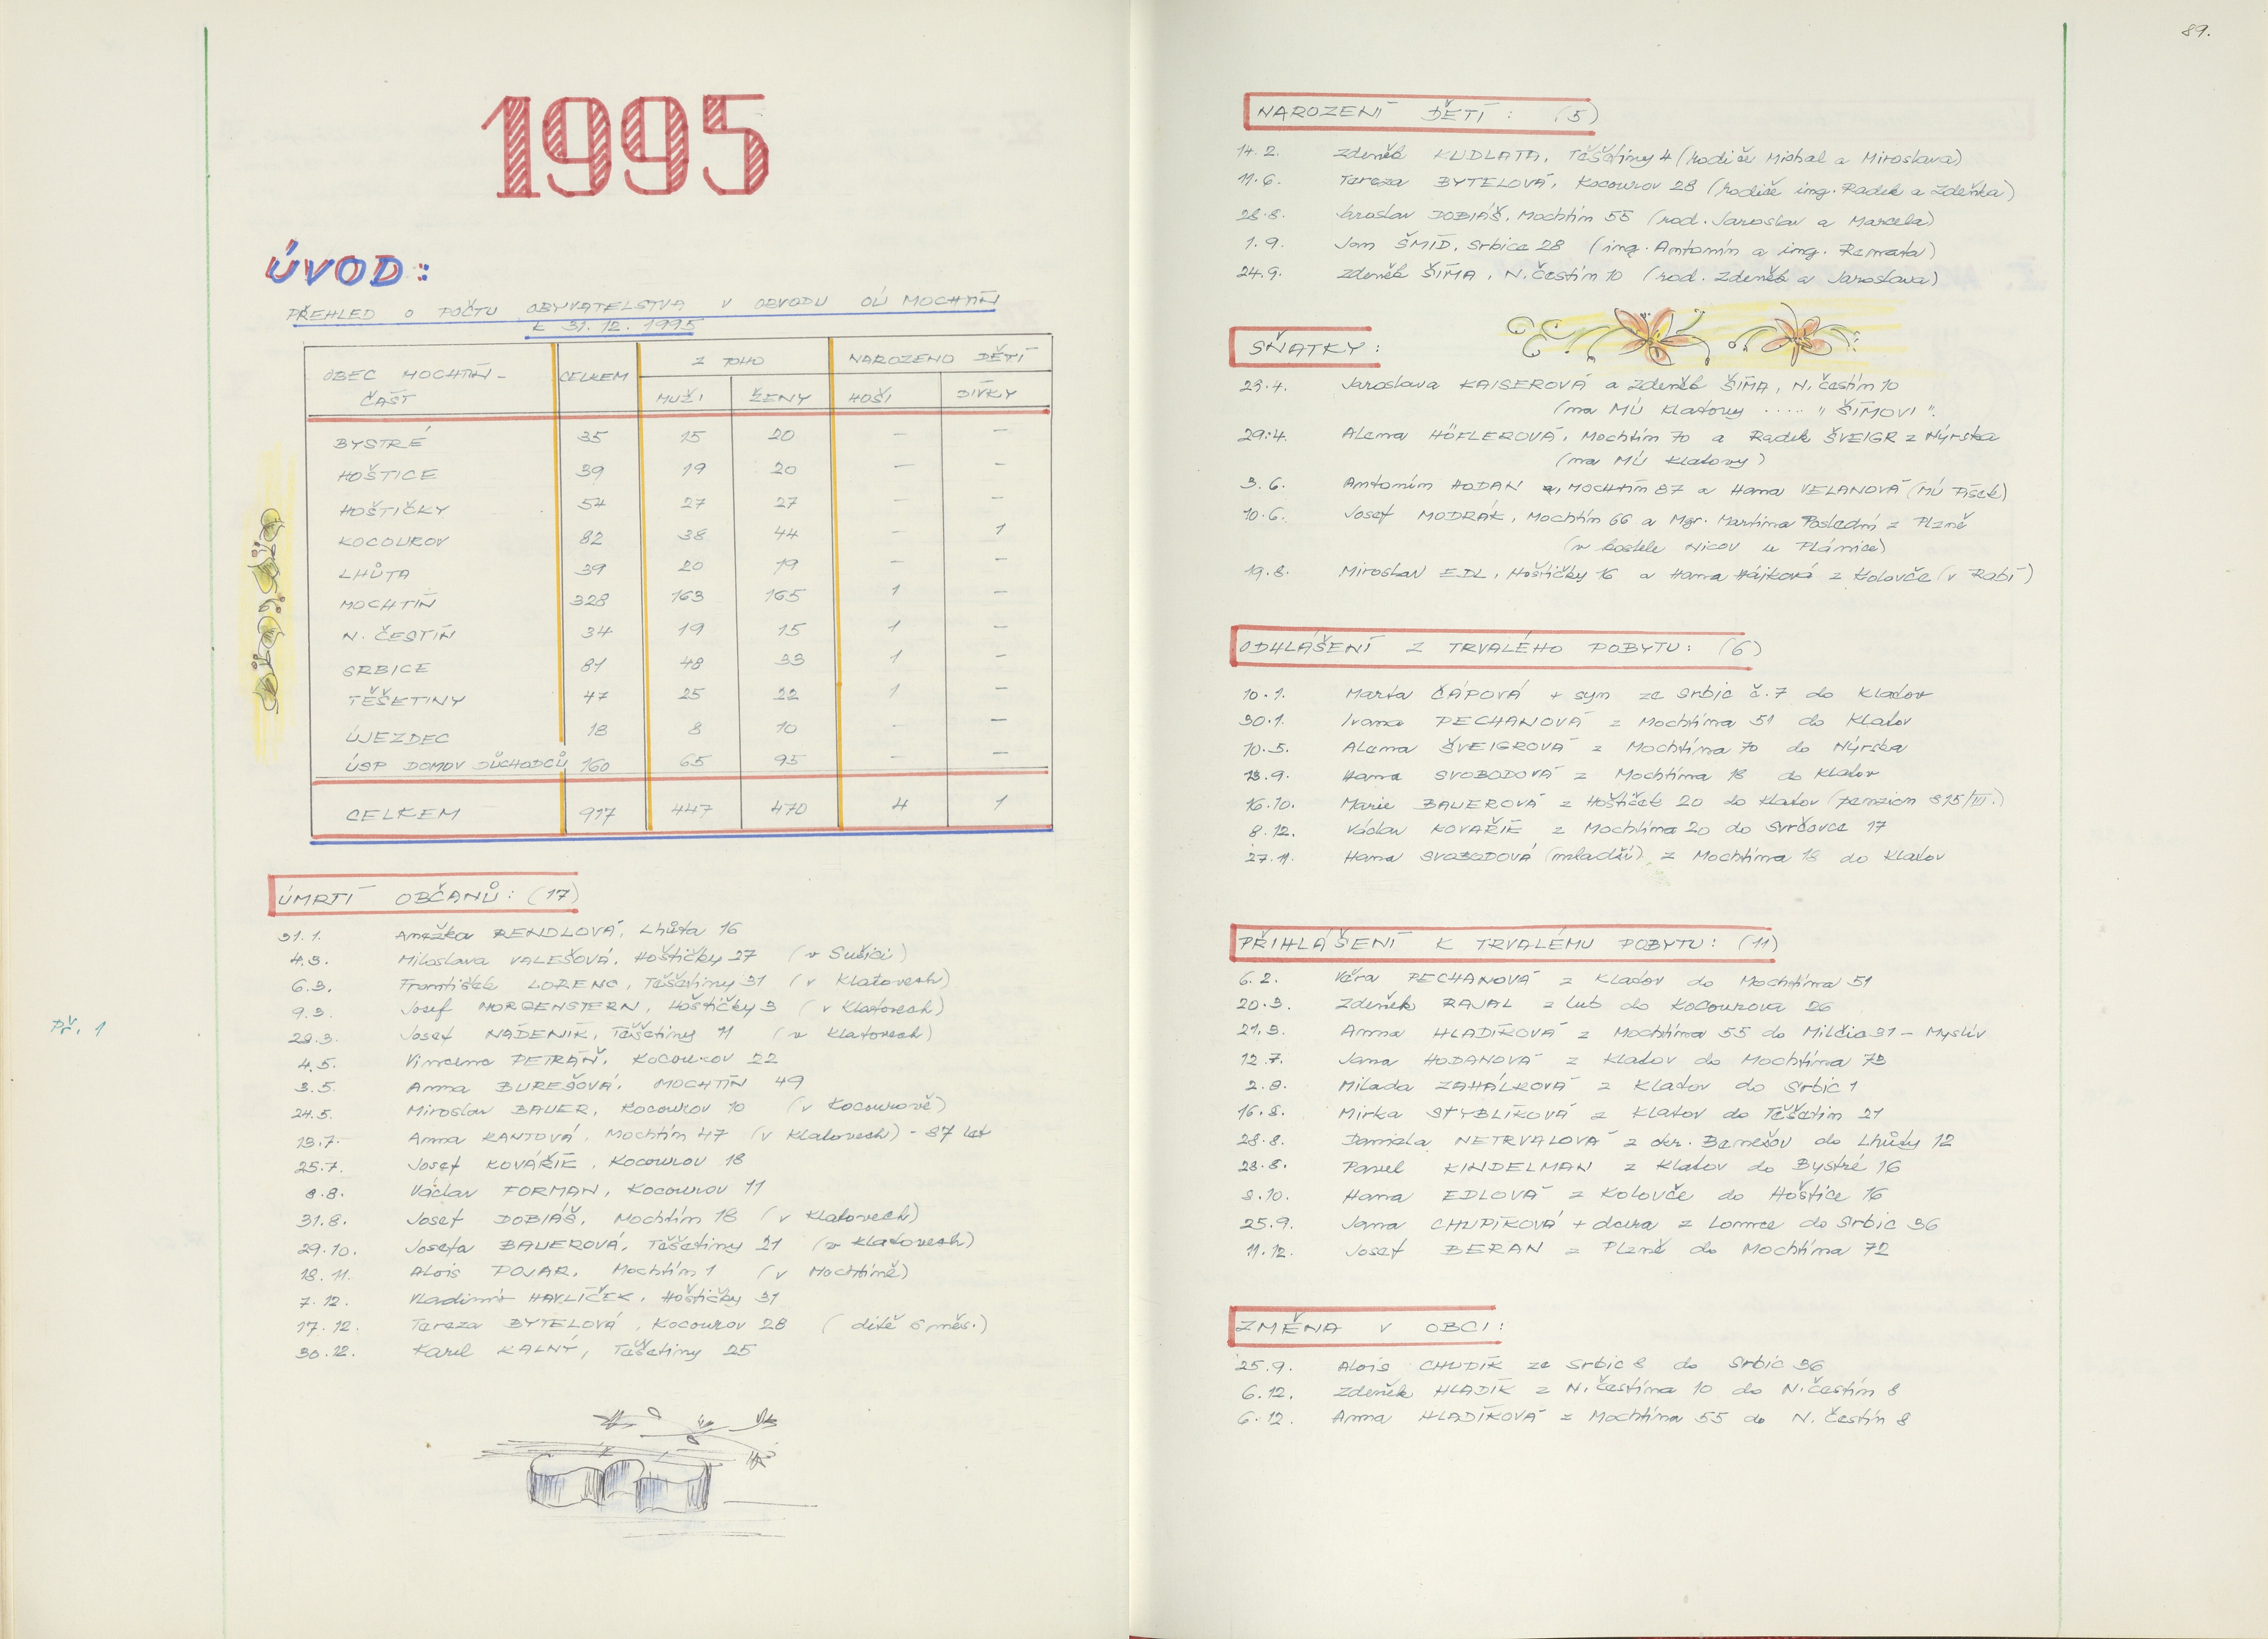 1995
ÚVOD:
PŘEHLED O POČTU OBYVATELSTVA V OBVODU OÚ MOCHTÍN
K 31.12.1995
OBEC MOCHTÍN - ČÁST CELKEM Z TOHO NAROZENO DĚTÍ
MUŽI ŽENY HOŠI DÍVKY
BYSTRÉ 35 15 20 – –
HOŠTICE 39 19 20 – –
HOŠTIČKY 54 27 27 – –
KOCOUROV 82 38 44 – 1
LHŮTA 39 20 19 – –
MOCHTÍN 328 163 165 1 –
N. ČESTÍN 34 19 15 1 –
SRBICE 81 48 33 1 –
TĚŠETINY 47 25 22 1 –
ÚJEZDEC 18 8 10 – –
ÚSP DOMOV DŮCHODCŮ 160 65 95 – –
CELKEM 917 447 470 4 1
ÚMRTÍ OBČANŮ: (17)
31.1. Anežka RENDLOVÁ, Lhůta 16
4.3. Miloslava VALEŠOVÁ, Hoštičky 27 (v Sušici)
6.3. František LORENC, Těšetiny 31 (v Klatovech)
9.3. Josef MORGENSTERN, Hoštičky 3 (v Klatovech)
29.3. Josef NÁDENÍK, Těšetiny 11 (v Klatovech)
Př. 1
4.5. Vincenc PETRÁŇ, Kocourov 22
3.5. Anna BUREŠOVÁ, MOCHTÍN 49
24.5. Miroslav BAUER, Kocourov 10 (v Kocourově)
13.7. Anna KANTOVÁ, Mochtín 47 (v Klatovech) - 87 let
25.7. Josef KOVÁŘÍK, Kocourov 18
8.8. Václav FORMAN, Kocourov 11
31.8. Josef DOBIÁŠ, Mochtín 18 (v Klatovech)
29.10. Josefa BAUEROVÁ, Těšetiny 21 (v Klatovech)
18.11. Alois POJAR, Mochtín 1 (v Mochtíně)
7.12. Vladimír HAVLÍČEK, Hoštičky 31
17.12. Tereza BYTELOVÁ, Kocourov 28 (dítě 6 měs.)
30.12. Karel KALNÝ, Těšetiny 25
89.
NAROZENÍ DĚTÍ: (5)
14.2. Zdeněk KUDLATA, Těšetiny 4 (rodiče Michal a Miroslava)
11.6. Tereza BYTELOVÁ, Kocourov 28 (rodiče ing. Radek a Zdeňka)
28.8. Jaroslav DOBIÁŠ, Mochtín 55 (rod. Jaroslav a Marcela)
1.9. Jan ŠMÍD, Srbice 28 (ing. Antonín a ing. Renata)
24.9. Zdeněk ŠÍMA, N. Čestín 10 (rod. Zdeněk a Jaroslava)
SŇATKY:
29.4. Jaroslava KAISEROVÁ a Zdeněk ŠÍMA, N. Čestín 10
(na MÚ Klatovy ..... "ŠÍMOVI".
29.4. Alena HÖFLEROVÁ, Mochtín 70 a Radek ŠVEIGR z Nýrska
(na MÚ Klatovy)
3.6. Antonín HODAN, MOCHTÍN 87 a Hana VELANOVÁ (MÚ Písek)
10.6. Josef MODRÁK, Mochtín 66 a Mgr. Martina Poslední z Plzně
(v kostele Nicov u Plánice)
19.8. Miroslav EDL, Hoštičky 16 a Hana Hájková z Koloveče (v Rabí)
ODHLÁŠENÍ Z TRVALÉHO POBYTU: (6)
10.1. Marta ČÁPOVÁ + syn ze Srbic č.7 do Klatov
30.1. Ivana PECHANOVÁ z Mochtína 51 do Klatov
10.5. Alena ŠVEIGROVÁ z Mochtína 70 do Nýrska
13.9. Hana SVOBODOVÁ z Mochtína 18 do Klatov
16.10. Marie BAUEROVÁ z Hoštiček 20 do Klatov (penzion 815/III.)
8.12. Václav KOVAŘÍK z Mochtína 20 do Svrčovce 17
27.11. Hana SVOBODOVÁ (mladší) z Mochtína 18 do Klatov
PŘIHLÁŠENÍ K TRVALÉMU POBYTU: (11)
6.2. Věra PECHANOVÁ z Klatov do Mochtína 51
20.3. Zdeněk RAJAL z Lub do Kocourova 26
21.3. Anna HLADÍKOVÁ z Mochtína 55 do Milčic 31 - Myslív
12.7. Jana HODANOVÁ z Klatov do Mochtína 73
2.8. Milada ZAHÁLKOVÁ z Klatov do Srbic 1
16.8. Mirka STYBLÍKOVÁ z Klatov do Těšetin 21
28.8. Daniela NETRVALOVÁ z okr. Benešov do Lhůty 12
28.8. Pavel KINDELMAN z Klatov do Bystré 16
3.10. Hana EDLOVÁ z Koloveče do Hoštice 16
25.9. Jana CHUPÍKOVÁ + dcera z Lomce do Srbic 36
11.12. Josef BERAN z Plzně do Mochtína 72
ZMĚNA V OBCI:
25.9. Alois CHUDÍK ze Srbic 8 do Srbic 36
6.12. Zdeněk HLADÍK z N. Čestína 10 do N. Čestín 8
6.12. Anna HLADÍKOVÁ z Mochtína 55 do N. Čestín 8